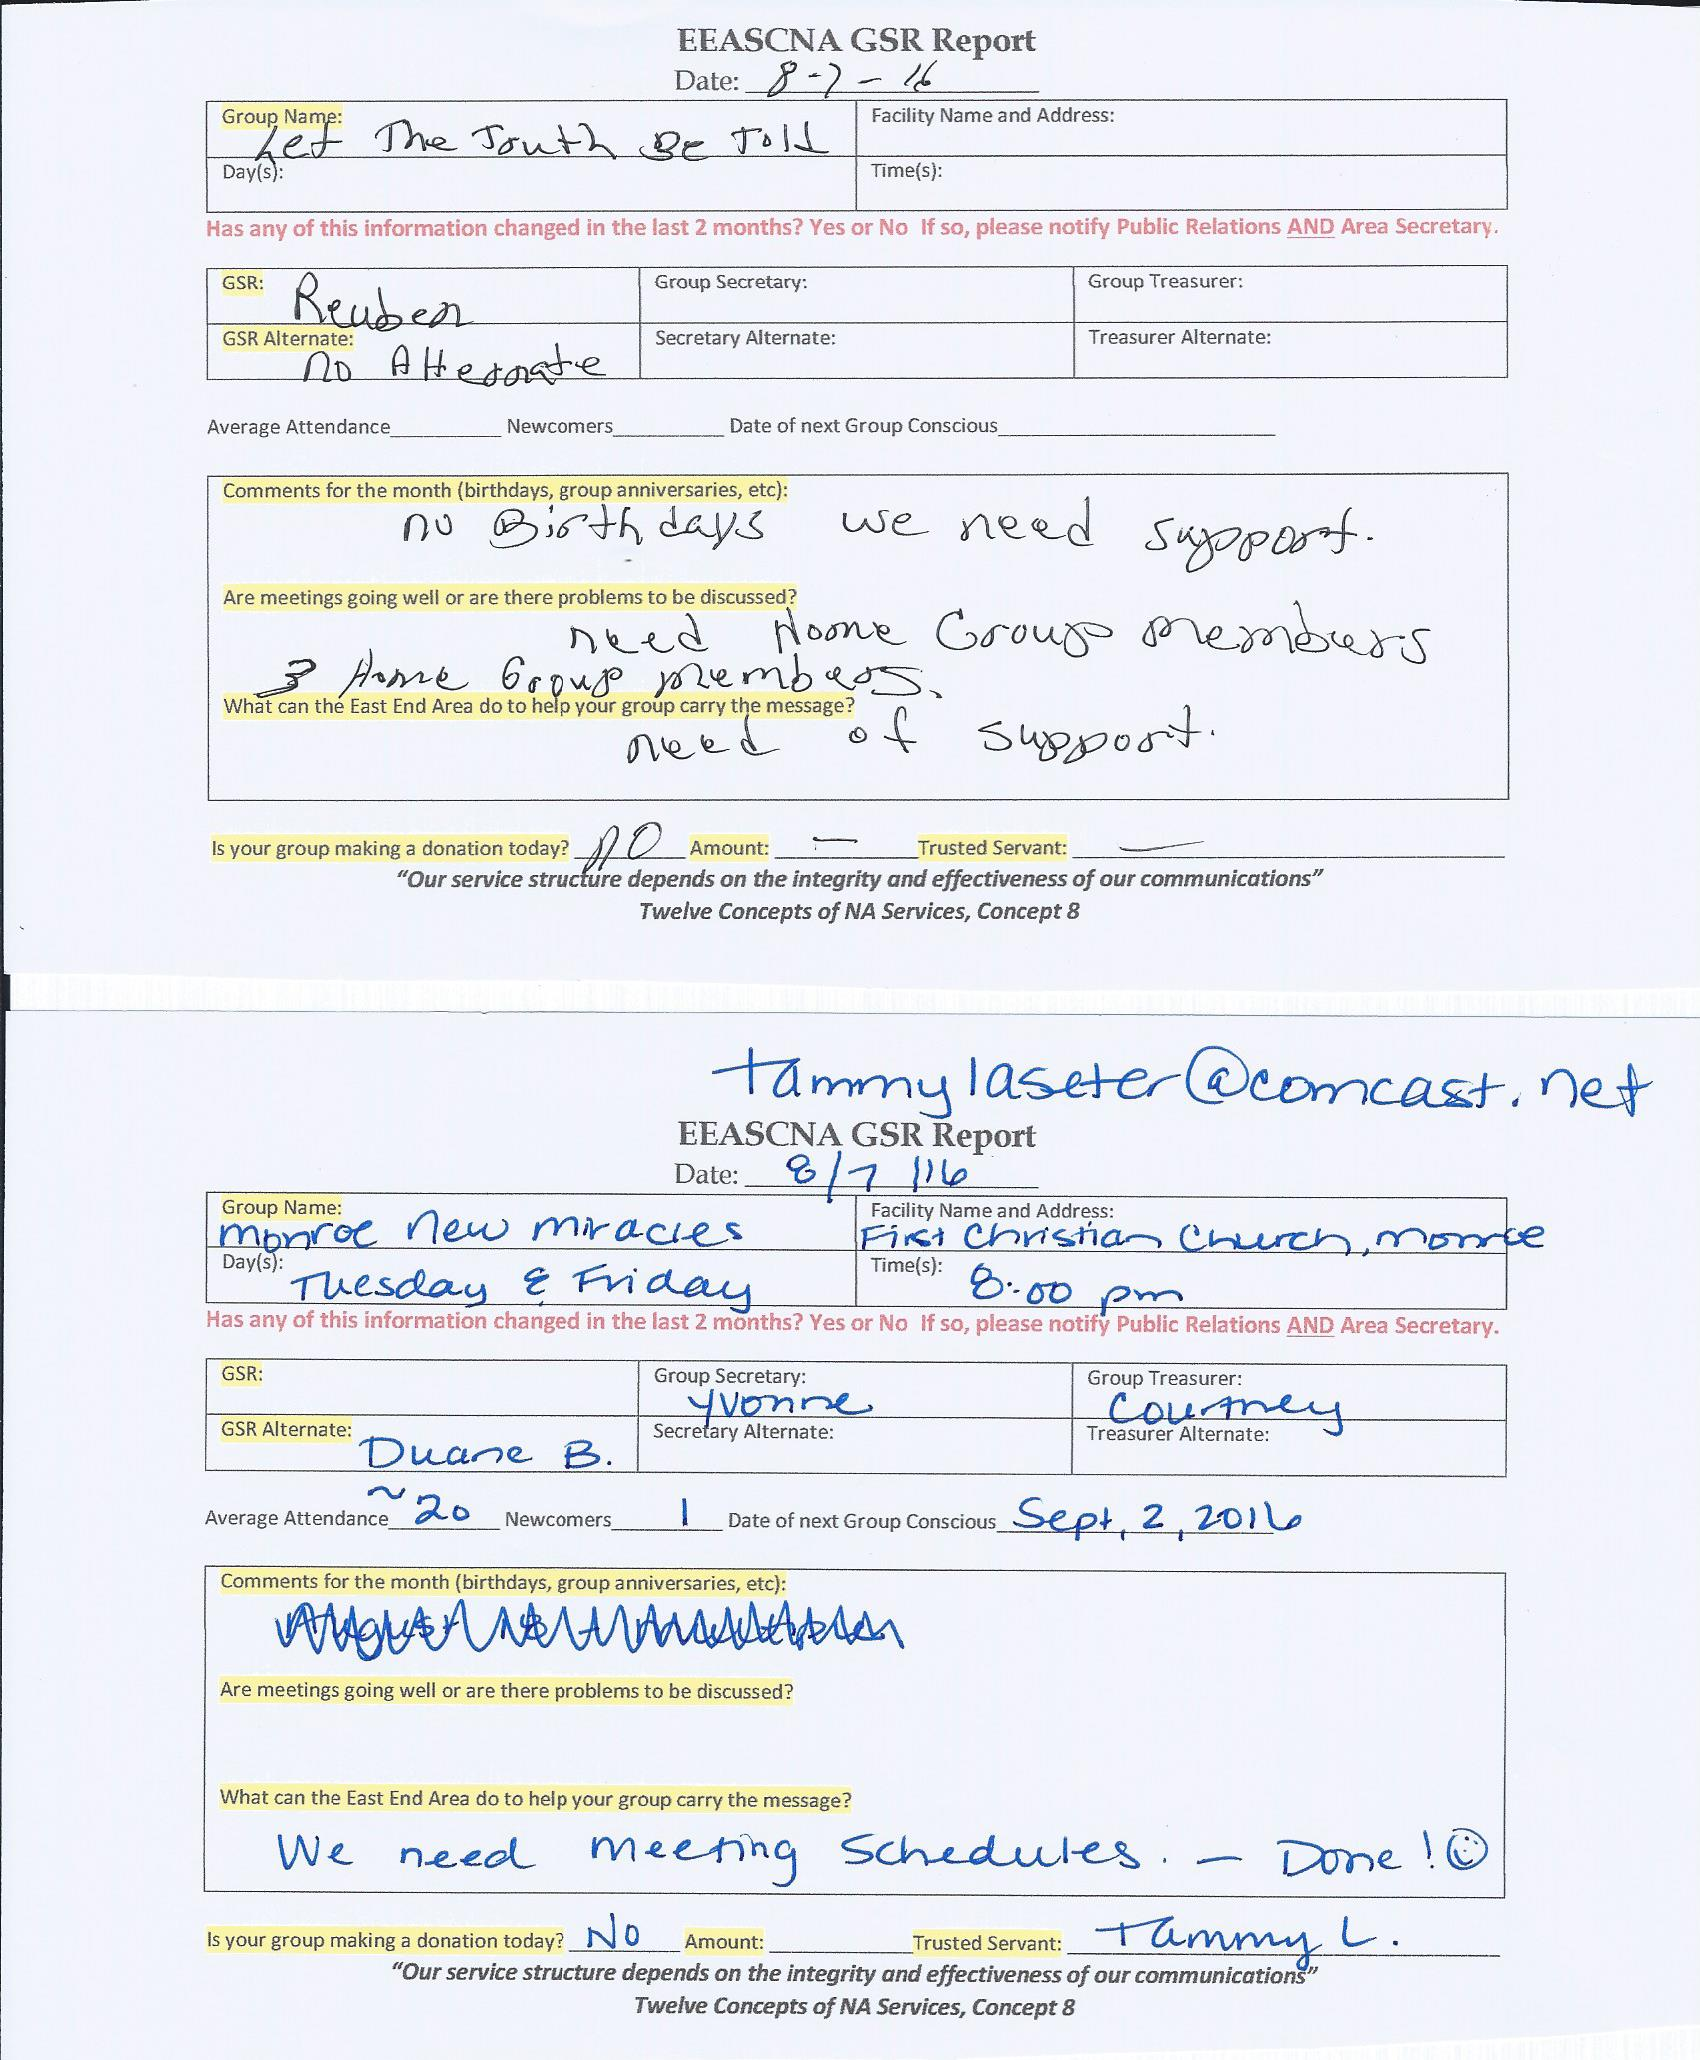 EEASCNA GSR Report
Date: 8-7-16
Group Name: Let The Truth Be Told
Facility Name and Address:
Day(s):
Time(s):
Has any of this information changed in the last 2 months? Yes or No If so, please notify Public Relations AND Area Secretary.
GSR: Reuben
Group Secretary:
Group Treasurer:
GSR Alternate: no Alternate
Secretary Alternate:
Treasurer Alternate:
Average Attendance__________ Newcomers__________ Date of next Group Conscious__________
Comments for the month (birthdays, group anniversaries, etc):
no Birthdays we need support.
Are meetings going well or are there problems to be discussed?
need Home Group members
3 Home Group members.
What can the East End Area do to help your group carry the message?
need of support.
Is your group making a donation today? NO Amount: — Trusted Servant: —
“Our service structure depends on the integrity and effectiveness of our communications”
Twelve Concepts of NA Services, Concept 8
tammylaseter@comcast.net
EEASCNA GSR Report
Date: 8/7/16
Group Name: Monroe New Miracles
Facility Name and Address: First Christian Church, Monroe
Day(s): Tuesday & Friday
Time(s): 8:00 pm
Has any of this information changed in the last 2 months? Yes or No If so, please notify Public Relations AND Area Secretary.
GSR:
Group Secretary: Yvonne
Group Treasurer: Courtney
GSR Alternate: Duane B.
Secretary Alternate:
Treasurer Alternate:
Average Attendance ~20 Newcomers 1 Date of next Group Conscious Sept, 2, 2016
Comments for the month (birthdays, group anniversaries, etc):
Are meetings going well or are there problems to be discussed?
What can the East End Area do to help your group carry the message?
We need meeting schedules. — Done! ☺
Is your group making a donation today? No Amount: Trusted Servant: Tammy L.
“Our service structure depends on the integrity and effectiveness of our communications”
Twelve Concepts of NA Services, Concept 8